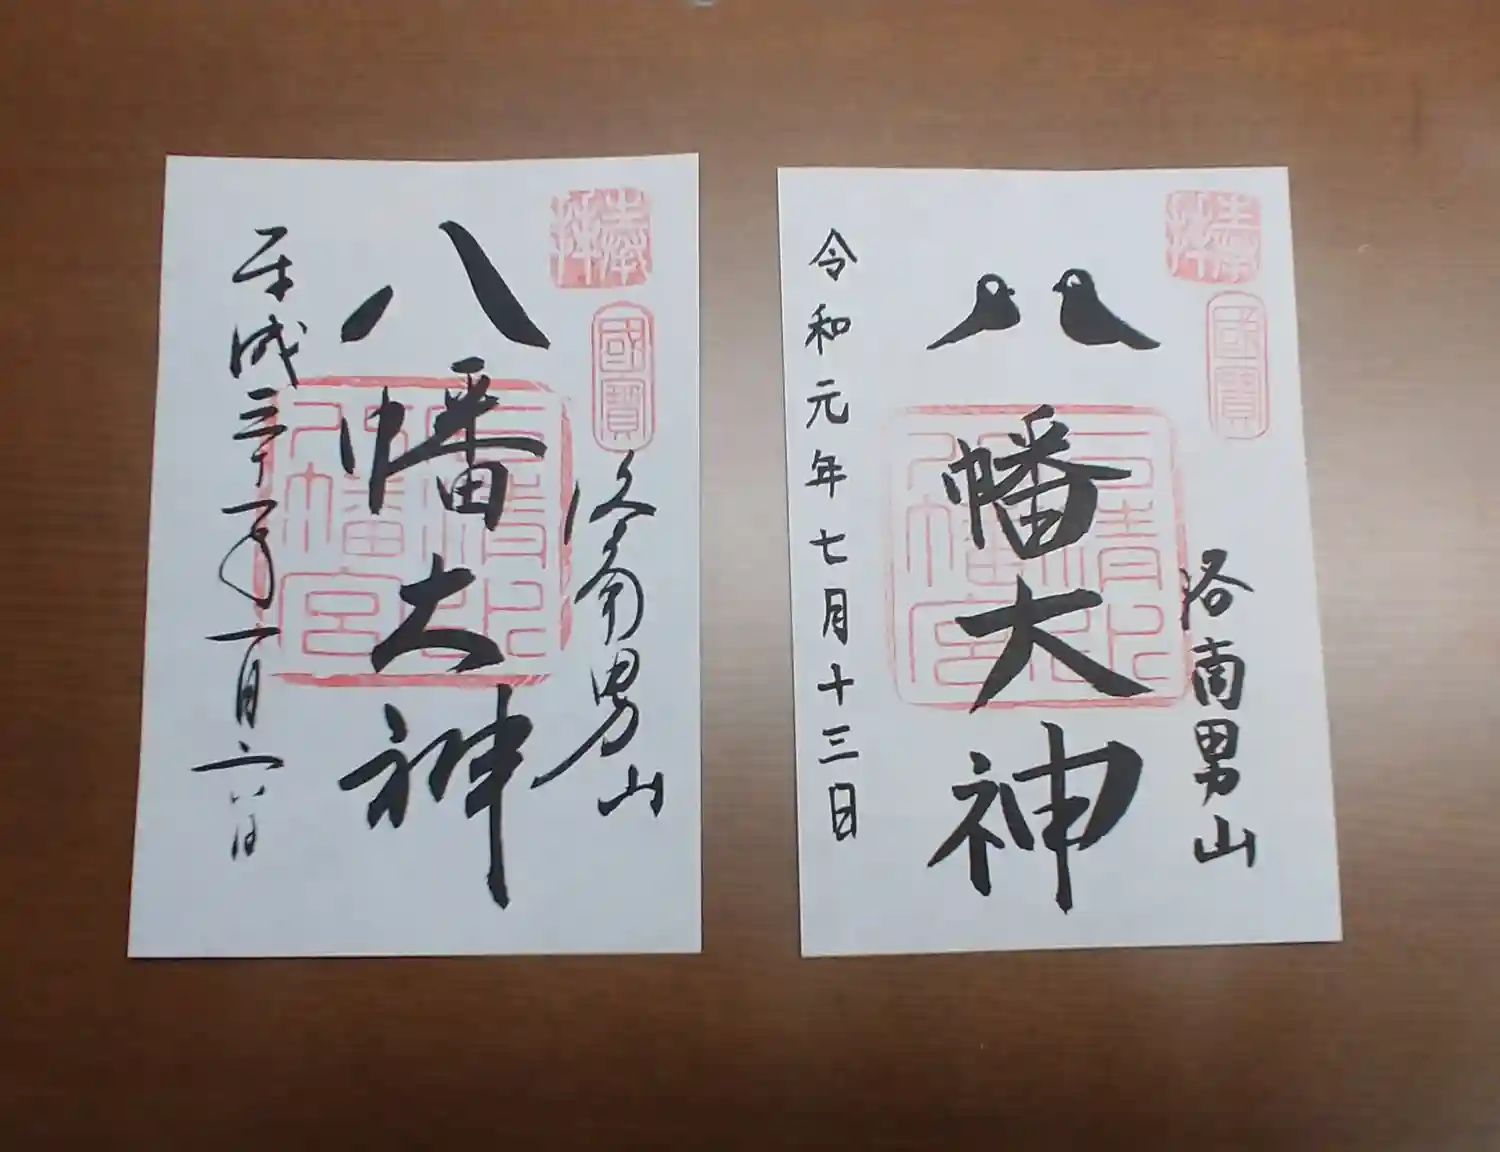 奉拝
國寶
洛南男山
八幡大神
石清水
八幡宮
平成三十一年一月六日
奉拝
國寶
洛南男山
八幡大神
石清水
八幡宮
令和元年七月十三日